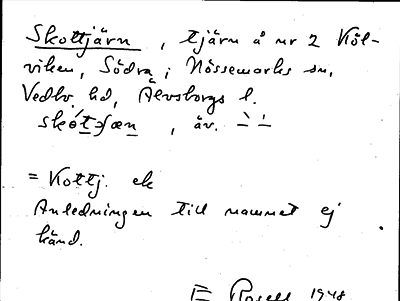 Skottjärn, tjärn å nr 2 Köl-
viken, Södra, i Nössemarks sn,
Vedbo hd, Älvsborgs l.
, äv.
= Kottj. ek
Anledningen till namnet ej
känd.
E Rosell 1948